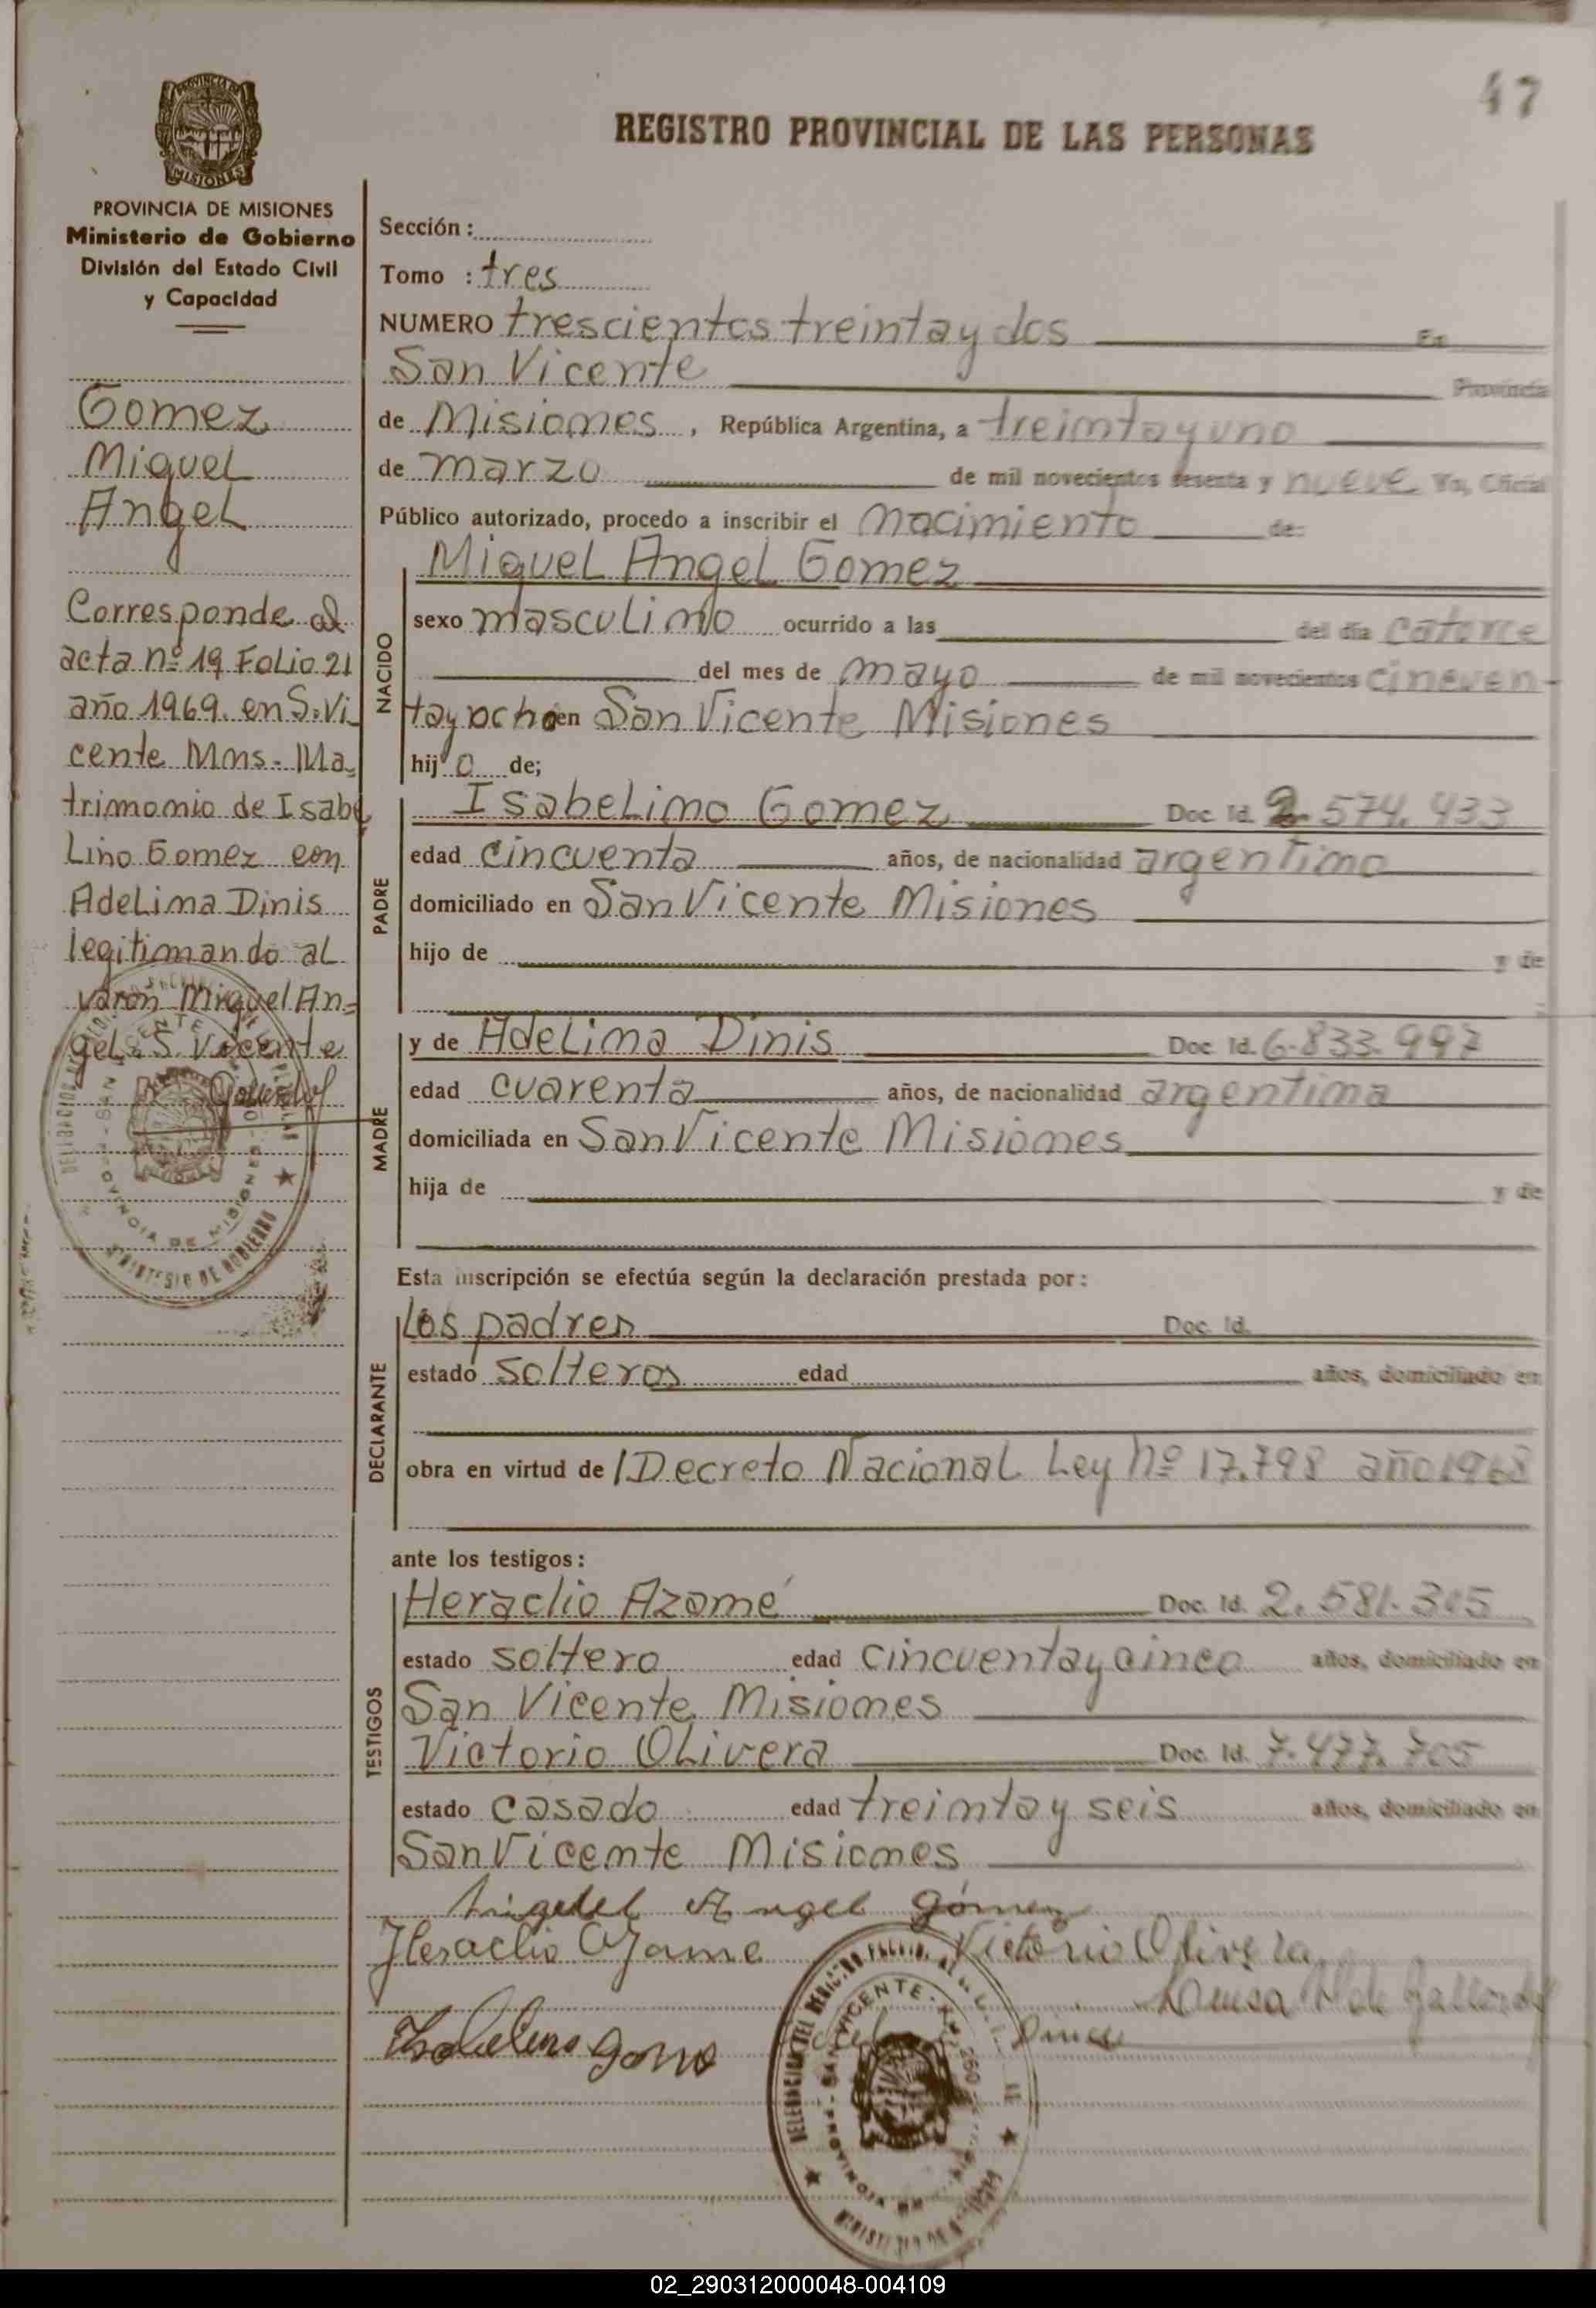 47
REGISTRO PROVINCIAL DE LAS PERSONAS
PROVINCIA DE MISIONES
Ministerio de Gobierno
División del Estado Civil
y Capacidad
Gomez
Miguel
Angel
Corresponde al
acta nº 19 Folio 21
año 1969. en S. Vi
cente Mns. Ma
trimonio de Isabe
Lino Gomez con
Adelima Dinis
legitimando al
varon Miguel An=
gel. S. Vicente
Sección:
Tomo : tres
NUMERO trescientos treinta y dos En
San Vicente Provincia
de Misiones, República Argentina, a treinta y uno
de marzo de mil novecientos sesenta y nueve Yo, Oficial
Público autorizado, procedo a inscribir el nacimiento de:
NACIDO
Miguel Angel Gomez
sexo masculino ocurrido a las del día catorce
del mes de mayo de mil novecientos cincuen-
ta y ocho en San Vicente Misiones
hijo de;
PADRE
Isabelino Gomez Doc. Id. 2.574.433
edad cincuenta años, de nacionalidad argentino
domiciliado en San Vicente Misiones
hijo de y de
MADRE
y de Adelima Dinis Doc. Id. 6.833.997
edad cuarenta años, de nacionalidad argentina
domiciliada en San Vicente Misiones
hija de y de
Esta inscripción se efectúa según la declaración prestada por:
DECLARANTE
Los padres Doc. Id.
estado solteros edad años, domiciliado en
obra en virtud de / Decreto Nacional Ley nº 17.798 año 1968
ante los testigos:
TESTIGOS
Heraclio Azamé Doc. Id. 2.581.305
estado soltero edad cincuenta y cinco años, domiciliado en
San Vicente Misiones
Victorio Olivera Doc. Id. 7.477.705
estado casado edad treinta y seis años, domiciliado en
San Vicente Misiones
Angel Gómez
Heraclio Azame Victorio Olivera
Isabelino Gomes
02_290312000048-004109